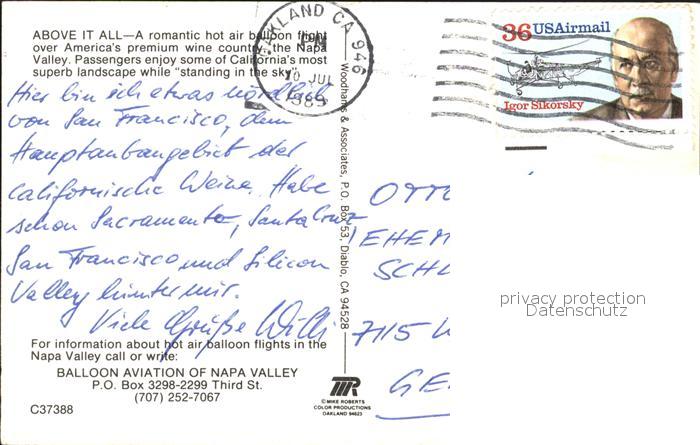 ABOVE IT ALL—A romantic hot air balloon flight
over America's premium wine country, the Napa
Valley. Passengers enjoy some of California's most
superb landscape while "standing in the sky."
Hier bin ich etwas nördlich
von San Francisco, dem
Hauptanbaugebiet der
Californische Weine. Habe
schon Sacramento, Santa Cruz
San Francisco und Silicon
Valley hinter mir.
Viele Grüße Willi
For information about hot air balloon flights in the
Napa Valley call or write:
BALLOON AVIATION OF NAPA VALLEY
P.O. Box 3298-2299 Third St.
(707) 252-7067
C37388
Woodhall & Associates, P.O. Box 53, Diablo, CA 94528
MR
©MIKE ROBERTS
COLOR PRODUCTIONS
OAKLAND 94623
OAKLAND CA 946
PM
10 JUL
1989
36 USAirmail
Igor Sikorsky
OTT
EHEM
SCHL
7115
GE
privacy protection
Datenschutz